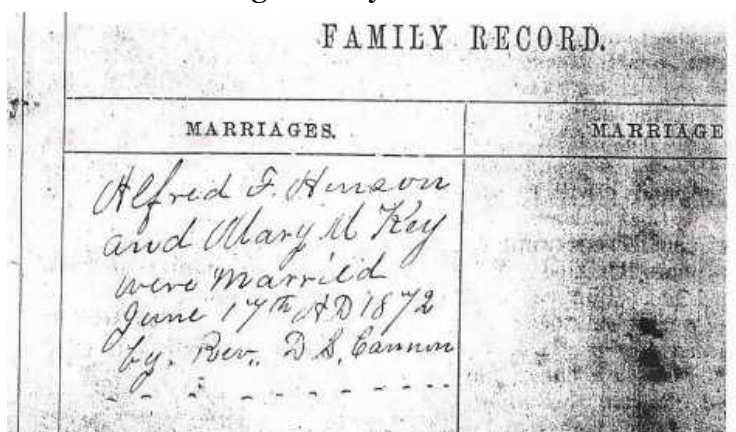 FAMILY RECORD.
MARRIAGES.
MARRIAGE
Alfred F. Hinson
and Mary M Key
were Married
June 17th AD 1872
by. Rev.. D S. Cannon